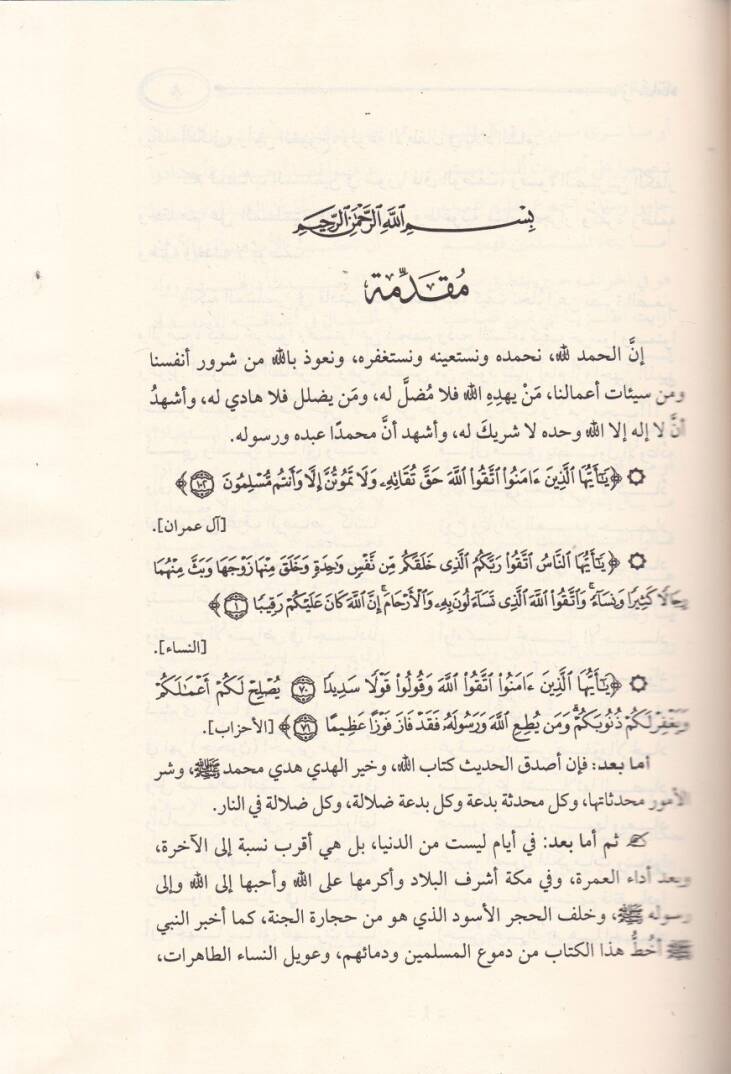 بِسْمِ اللَّهِ الرَّحْمَٰنِ الرَّحِيمِ
مُقَدِّمة
إنَّ الحمد لله، نحمده ونستعينه ونستغفره، ونعوذ بالله من شرور أنفسنا
ومن سيئات أعمالنا، مَنْ يهدِهِ الله فلا مُضلَّ له، ومَن يضلل فلا هادي له، وأشهدُ
أنَّ لا إله إلا الله وحده لا شريكَ له، وأشهد أنَّ محمدًا عبده ورسوله.
۞ ﴿يَـٰٓأَيُّهَا ٱلَّذِينَ ءَامَنُوا۟ ٱتَّقُوا۟ ٱللَّهَ حَقَّ تُقَاتِهِۦ وَلَا تَمُوتُنَّ إِلَّا وَأَنتُم مُّسْلِمُونَ ١٠٢﴾
[آل عمران].
۞ ﴿يَـٰٓأَيُّهَا ٱلنَّاسُ ٱتَّقُوا۟ رَبَّكُمُ ٱلَّذِى خَلَقَكُم مِّن نَّفْسٍ وَٰحِدَةٍ وَخَلَقَ مِنْهَا زَوْجَهَا وَبَثَّ مِنْهُمَا
رِجَالًا كَثِيرًا وَنِسَآءً ۚ وَٱتَّقُوا۟ ٱللَّهَ ٱلَّذِى تَسَآءَلُونَ بِهِۦ وَٱلْأَرْحَامَ ۚ إِنَّ ٱللَّهَ كَانَ عَلَيْكُمْ رَقِيبًا ١﴾
[النساء].
۞ ﴿يَـٰٓأَيُّهَا ٱلَّذِينَ ءَامَنُوا۟ ٱتَّقُوا۟ ٱللَّهَ وَقُولُوا۟ قَوْلًا سَدِيدًا ٧٠ يُصْلِحْ لَكُمْ أَعْمَـٰلَكُمْ
وَيَغْفِرْ لَكُمْ ذُنُوبَكُمْ ۗ وَمَن يُطِعِ ٱللَّهَ وَرَسُولَهُۥ فَقَدْ فَازَ فَوْزًا عَظِيمًا ٧١﴾ [الأحزاب].
أما بعد: فإن أصدق الحديث كتاب الله، وخير الهدي هدي محمد ﷺ، وشر
الأمور محدثاتها، وكل محدثة بدعة وكل بدعة ضلالة، وكل ضلالة في النار.
✍ ثم أما بعد: في أيام ليست من الدنيا، بل هي أقرب نسبة إلى الآخرة،
وبعد أداء العمرة، وفي مكة أشرف البلاد وأكرمها على الله وأحبها إلى الله وإلى
رسوله ﷺ، وخلف الحجر الأسود الذي هو من حجارة الجنة، كما أخبر النبي
ﷺ أخُطُّ هذا الكتاب من دموع المسلمين ودمائهم، وعويل النساء الطاهرات،